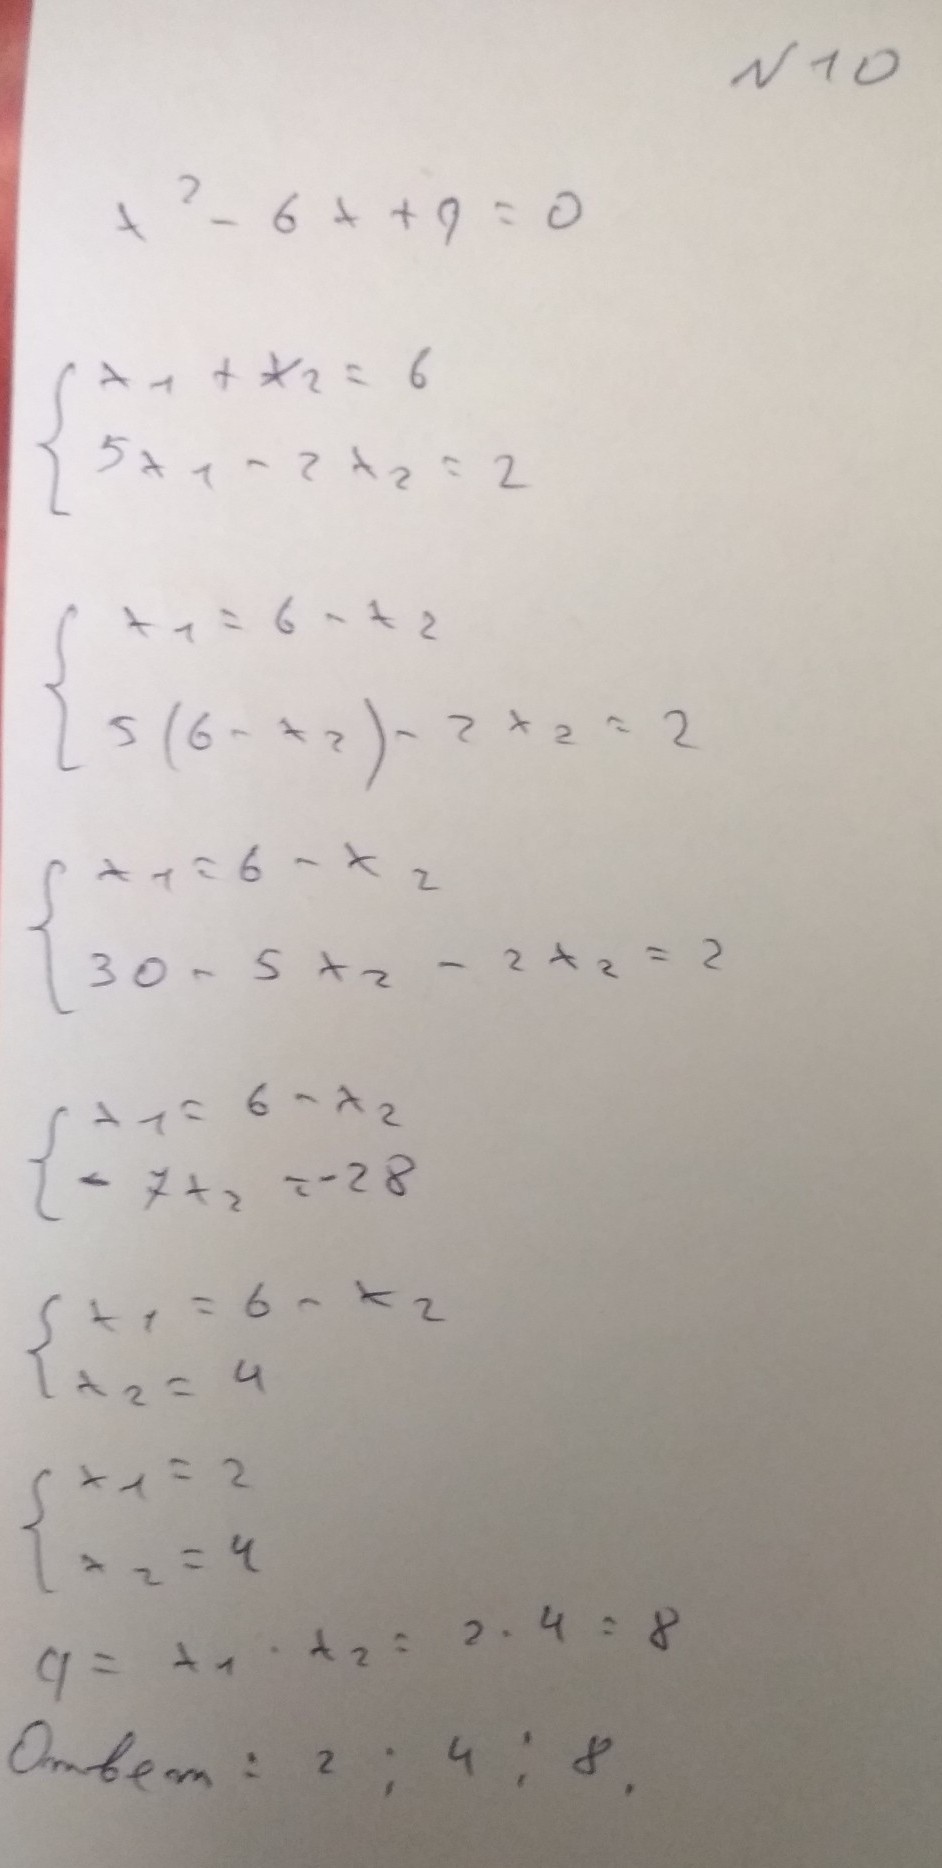 N10
x² - 6x + q = 0
x₁ + x₂ = 6
5x₁ - 2x₂ = 2
x₁ = 6 - x₂
5(6 - x₂) - 2x₂ = 2
x₁ = 6 - x₂
30 - 5x₂ - 2x₂ = 2
x₁ = 6 - x₂
- 7x₂ = -28
x₁ = 6 - x₂
x₂ = 4
x₁ = 2
x₂ = 4
q = x₁ · x₂ = 2 · 4 = 8
Ответ: 2; 4; 8.